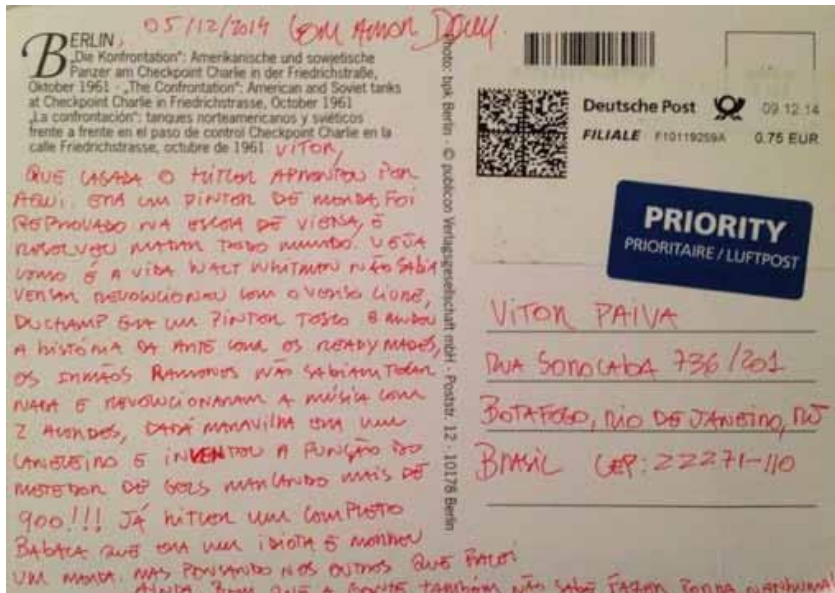 05/12/2014 Com Amor
BERLIN,
„Die Konfrontation": Amerikanische und sowjetische
Panzer am Checkpoint Charlie in der Friedrichstraße,
Oktober 1961 - „The Confrontation": American and Soviet tanks
at Checkpoint Charlie in Friedrichstrasse, October 1961
„La confrontación": tanques norteamericanos y sviéticos
frente a frente en el paso de control Checkpoint Charlie en la
calle Friedrichstrasse, octubre de 1961
VITOR,
QUE CAGADA O HITLER APRONTOU POR
AQUI. ERA UM PINTOR DE MERDA, FOI
REPROVADO NA ESCOLA DE VIENA, E
RESOLVEU MATAR TODO MUNDO. VEJA
COMO É A VIDA WALT WHITMAN NÃO SABIA
VERSAR REVOLUCIONOU COM O VERSO LIVRE,
DUCHAMP ERA UM PINTOR TOSCO E MUDOU
A HISTÓRIA DA ARTE COM OS READYMADES,
OS IRMÃOS RAMONES NÃO SABIAM TOCAR
NADA E REVOLUCIONARAM A MÚSICA COM
2 ACORDES, DADÁ MARAVILHA ERA UM
CANELEIRO E INVENTOU A FUNÇÃO DO
METEDOR DE GOLS MARCANDO MAIS DE
900!!! JÁ HITLER UM COMPLETO
BABACA QUE ERA UM IDIOTA E MORREU
UM MERDA. MAS PENSANDO NOS OUTROS QUE FALEI
AINDA BEM QUE A GENTE TAMBÉM NÃO SABE FAZER PORRA NENHUMA!
Photo: bpk Berlin · © publicon Verlagsgesellschaft mbH · Poststr. 12 · 10178 Berlin
Deutsche Post 09.12.14
FILIALE F10119259A 0.75 EUR
PRIORITY
PRIORITAIRE / LUFTPOST
VITOR PAIVA
RUA SOROCABA 736/201
BOTAFOGO, RIO DE JANEIRO, RJ
BRASIL CEP: 22271-110